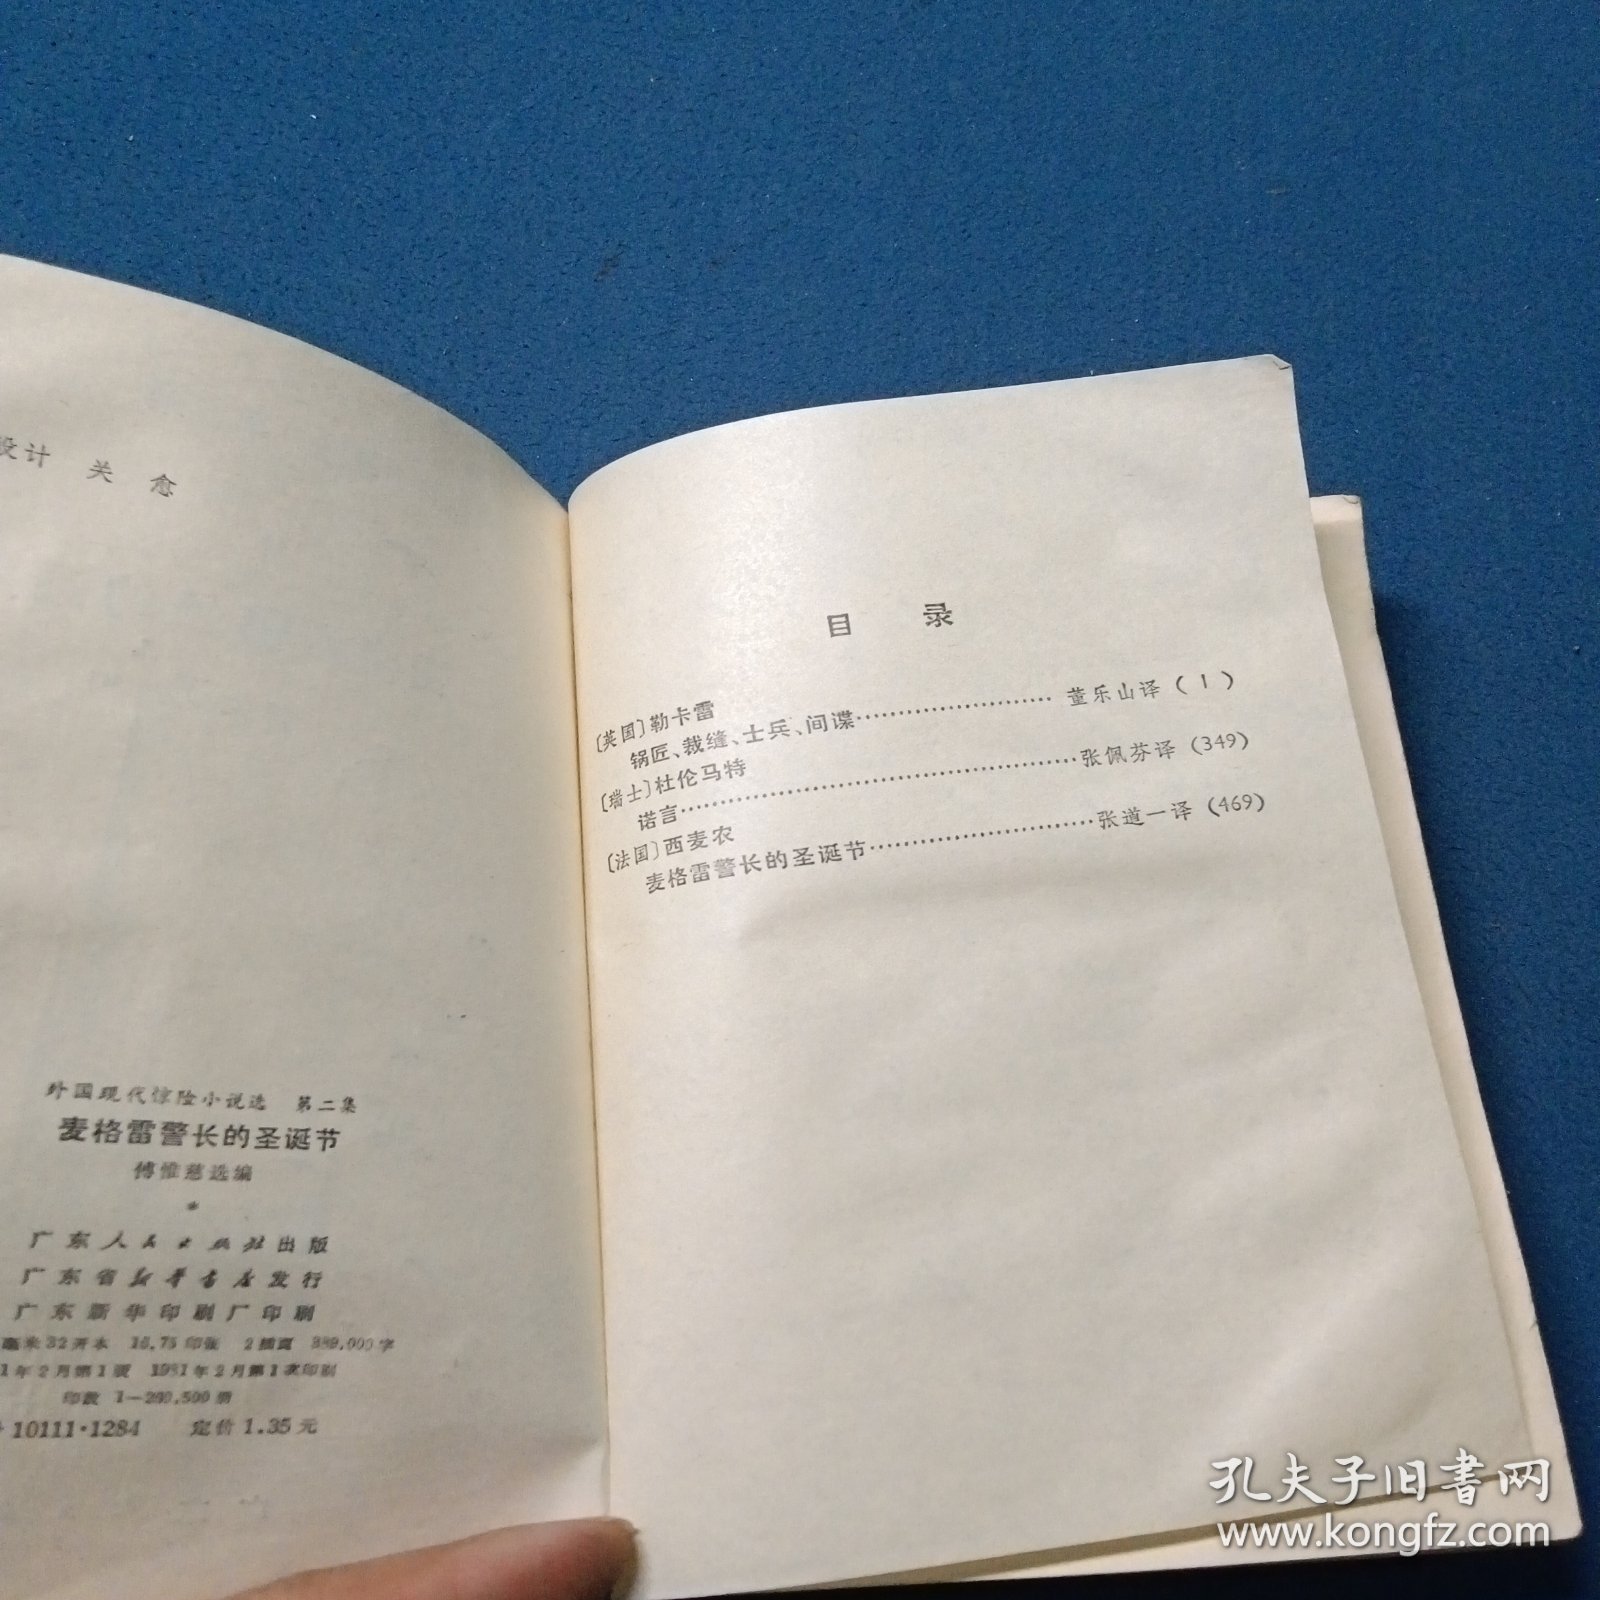 设计 关 愈
外国现代惊险小说选 第二集
麦格雷警长的圣诞节
傅惟慈选编
*
广东人民出版社出版
广东省新华书店发行
广东新华印刷厂印刷
毫米32开本 16.75印张 2插页 389,000字
1年2月第1版 1981年2月第1次印刷
印数 1—260,500册
10111·1284 定价1.35元
目 录
〔英国〕勒卡雷
锅匠、裁缝、士兵、间谍……………………董乐山译(1)
〔瑞士〕杜伦马特
诺言……………………………………张佩芬译(349)
〔法国〕西麦农
麦格雷警长的圣诞节……………………张道一译(469)
孔夫子旧书网
www.kongfz.com